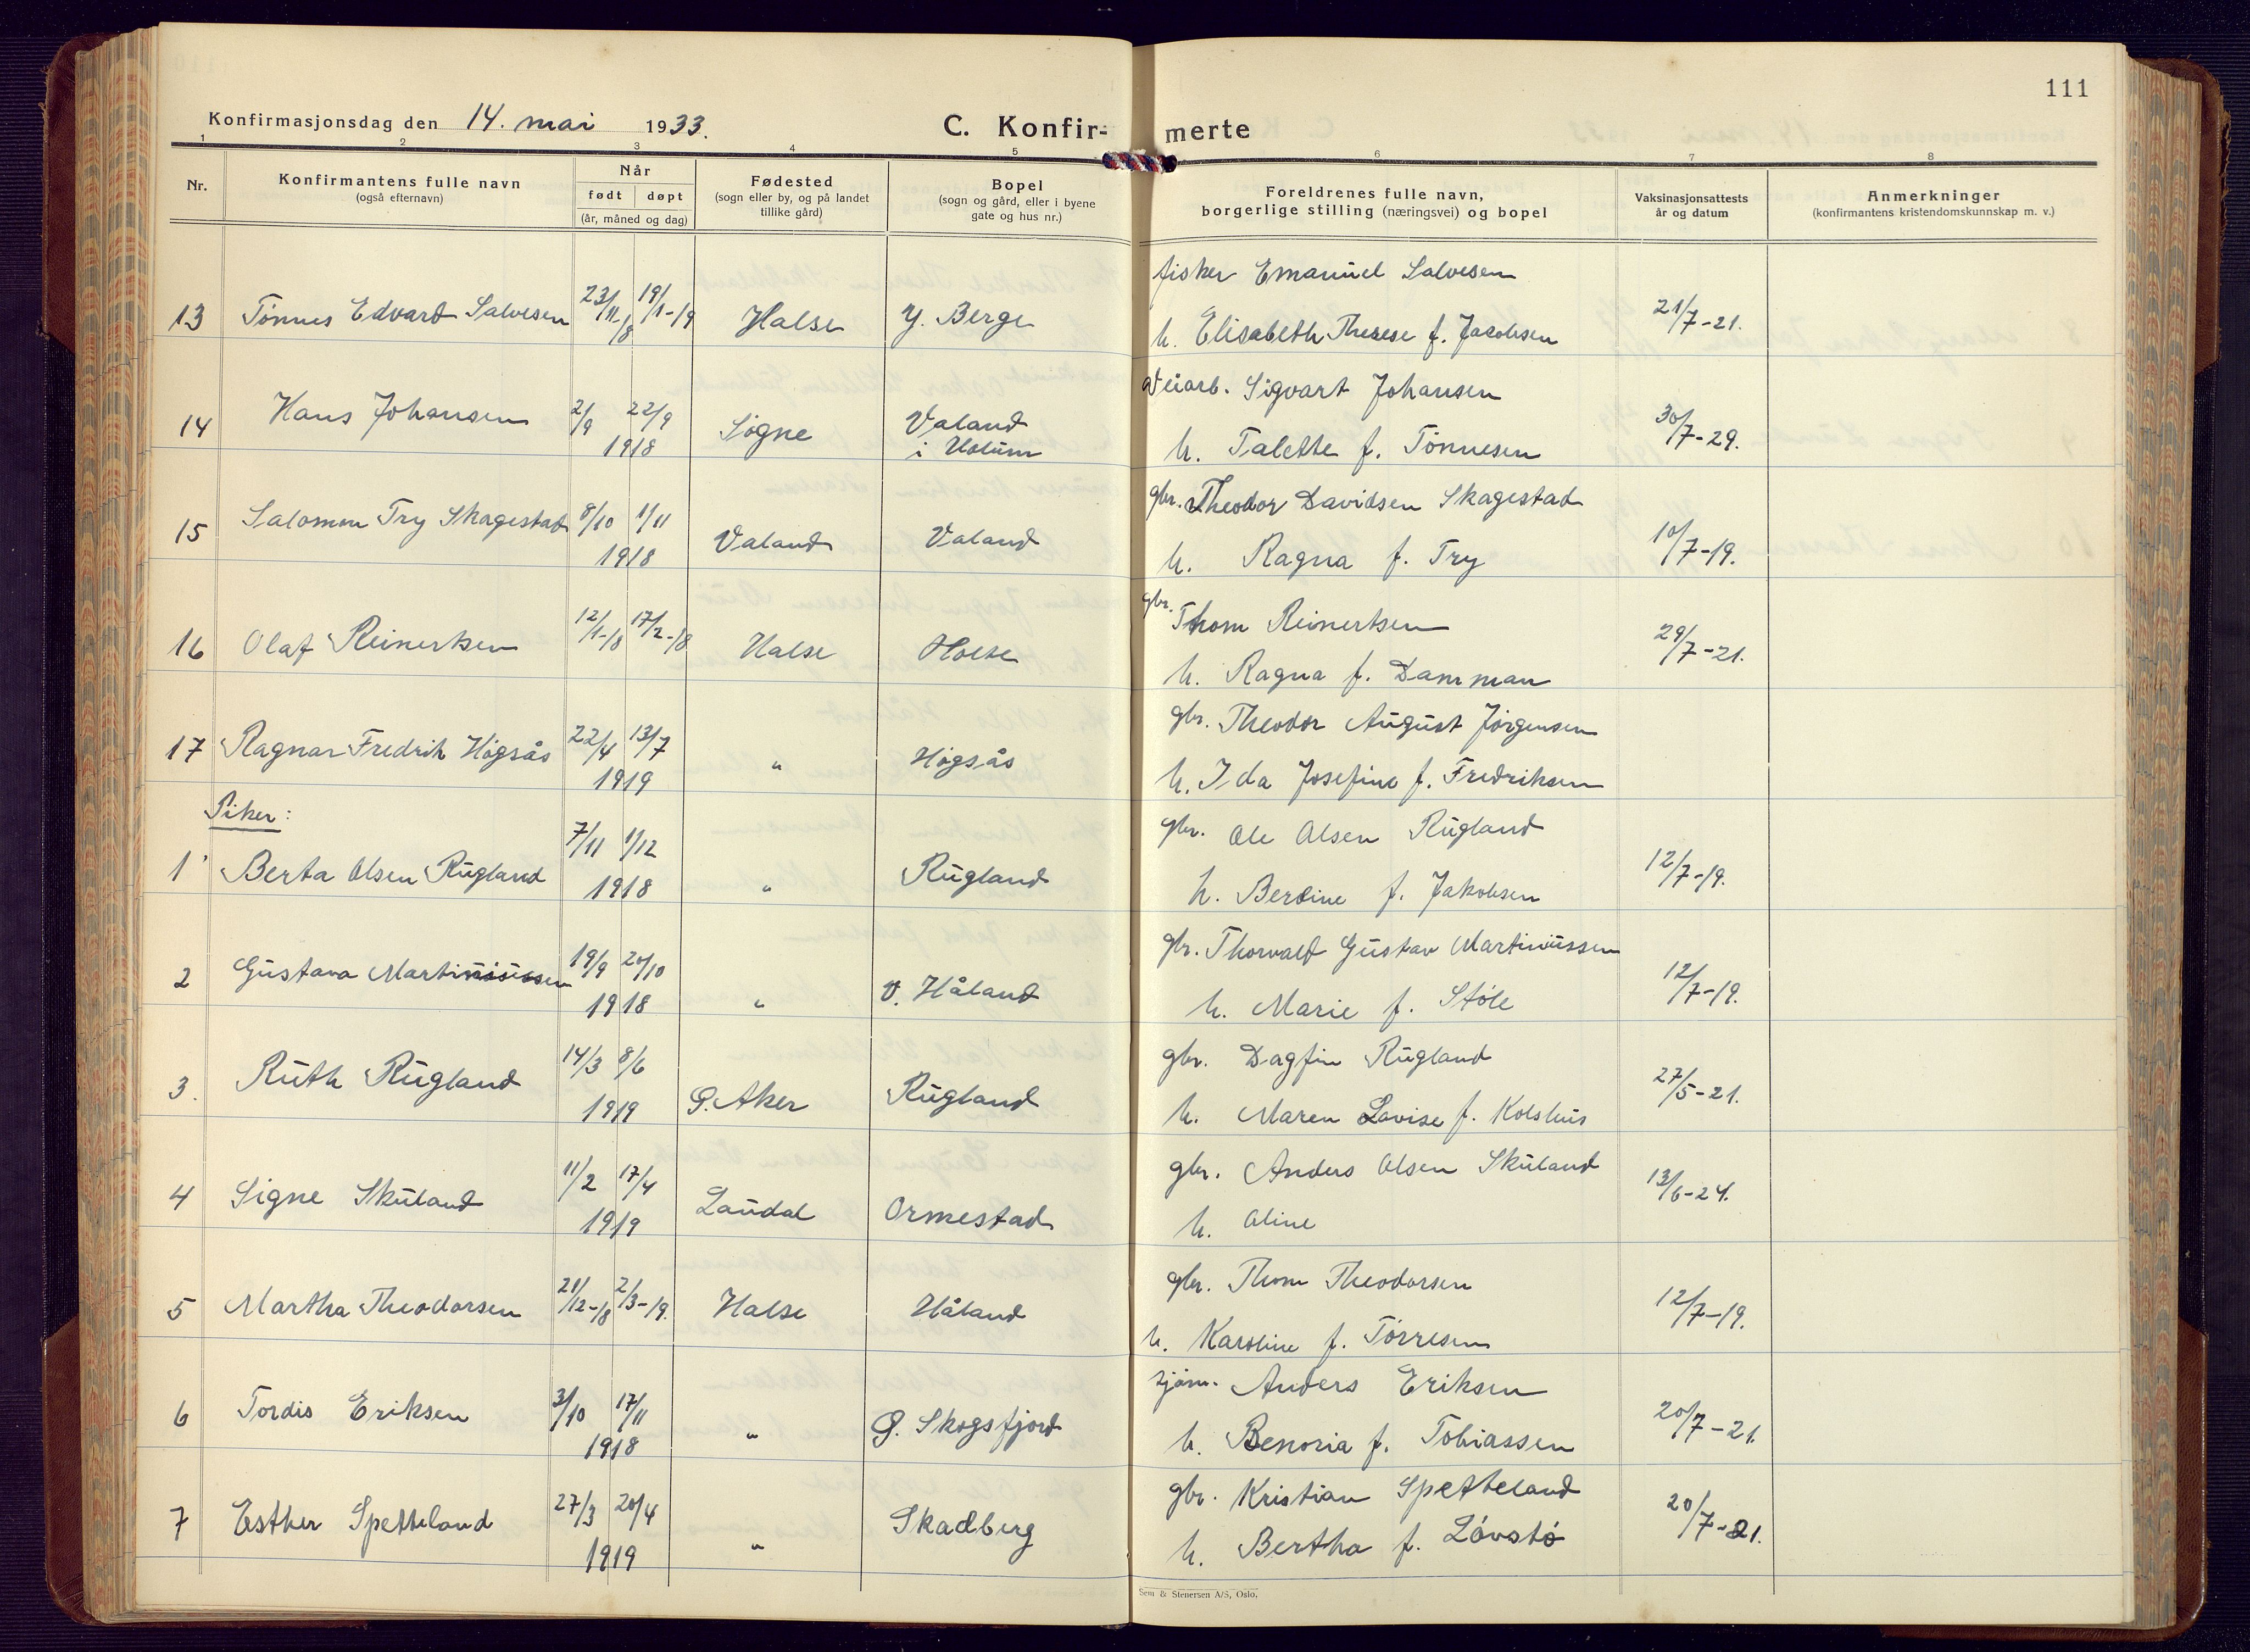 111
Konfirmasjonsdag den 14. mai 1933.
C. Konfir- merte
1 2 3 4 5 6 7 8
Nr.
Konfirmantens fulle navn
(også efternavn)
Når
født døpt
(år, måned og dag)
Fødested
(sogn eller by, og på landet
tillike gård)
Bopel
(sogn og gård, eller i byene
gate og hus nr.)
Foreldrenes fulle navn,
borgerlige stilling (næringsvei) og bopel
Vaksinasjonsattests
år og datum
Anmerkninger
(konfirmantens kristendomskunnskap m. v.)
fisker Emanuel Salvesen
13 Tønnes Edvard Salvesen 23/11-18 19/1-19 Halse Y. Berge 21/7-21.
h. Elisabeth Therese f. Jacobsen
Veiarb. Sigvart Johansen
14 Hans Johansen 2/9 22/9 Søgne Valand 30/7-29.
1918 i Holum h. Talette f. Tønnesen
gbr. Theodor Davidsen Skagestad
15 Salomon Try Skagestad 8/10 1/11 Valand Valand 10/7-19.
1918 h. Ragna f. Try
gbr. Thom Reinertsen
16 Olaf Reinertsen 12/1-18 17/2-18 Halse Halse 29/7-21.
h. Ragna f. Damman
gbr. Theodor August Jørgensen
17 Ragnar Fredrik Høgsås 22/4 13/7 " Høgsås
1919 h. Ida Josefine f. Fredriksen
Piker:
gbr. Ole Olsen Rugland
1 Berta Olsen Rugland 7/11 1/12 " Rugland 12/7-19.
1918 h. Berdine f. Jakobsen
gbr. Thorvald Gustav Martinussen
2 Gustava Martinussen 19/9 20/10 " V. Håland 12/7-19.
1918 h. Marie f. Støle
gbr. Dagfin Rugland
3. Ruth Rugland 14/3 8/6 Ø. Aker Rugland 27/5-21.
1919 h. Maren Lovise f. Kolshus
gbr. Anders Olsen Skuland
4 Signe Skuland 11/2 17/4 Laudal Ormestad 13/6-24.
1919 h. Aline
gbr. Thom Theodorsen
5 Martha Theodorsen 21/12-18 2/3-19. Halse Håland 12/7-19.
h. Karoline f. Tørresen
sjøm. Anders Eriksen
6 Tordis Eriksen 3/10 17/11 " Ø. Skogsfjord 20/7-21.
1918 h. Benoria f. Tobiassen
gbr. Kristian Spetteland
7 Esther Spetteland 27/3 20/4 " Skadberg 20/7-21.
1919 h. Bertha f. Løvstø
Sem & Stenersen A/S, Oslo.